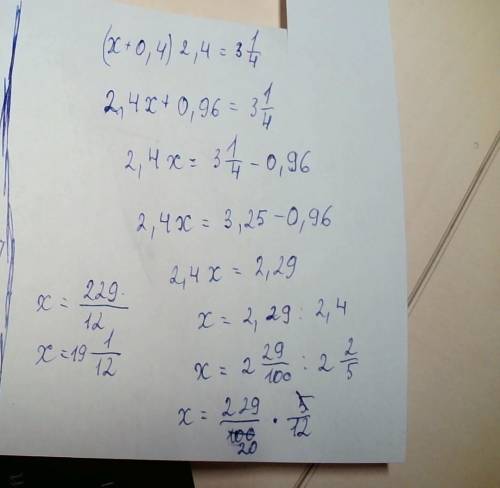 (x+0,4) 2,4 = 3 1/4
2,4x + 0,96 = 3 1/4
2,4x = 3 1/4 - 0,96
2,4x = 3,25 - 0,96
2,4x = 2,29
x = 2,29 : 2,4
x = 2 29/100 : 2 2/5
x = 229/20 · 5/12
x = 229/12
x = 19 1/12